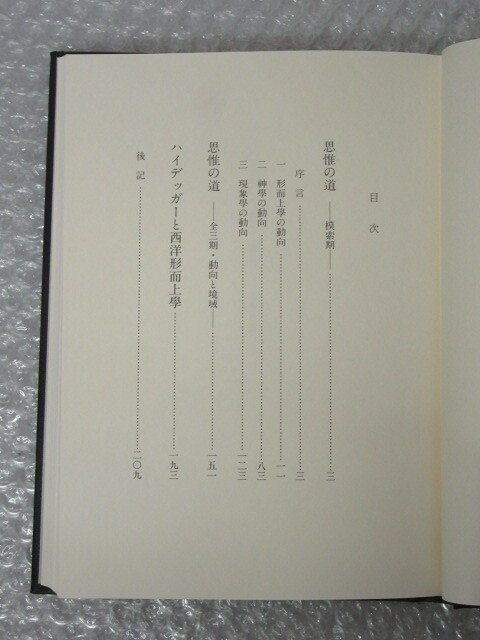 目次
思惟の道 ――模索期―― 三
序言 三
一 形而上學の動向 一一
二 神學の動向 八三
三 現象學の動向 一二三
思惟の道 ――全三期・動向と境域―― 一五一
ハイデッガーと西洋形而上學 一九三
後記 二〇九